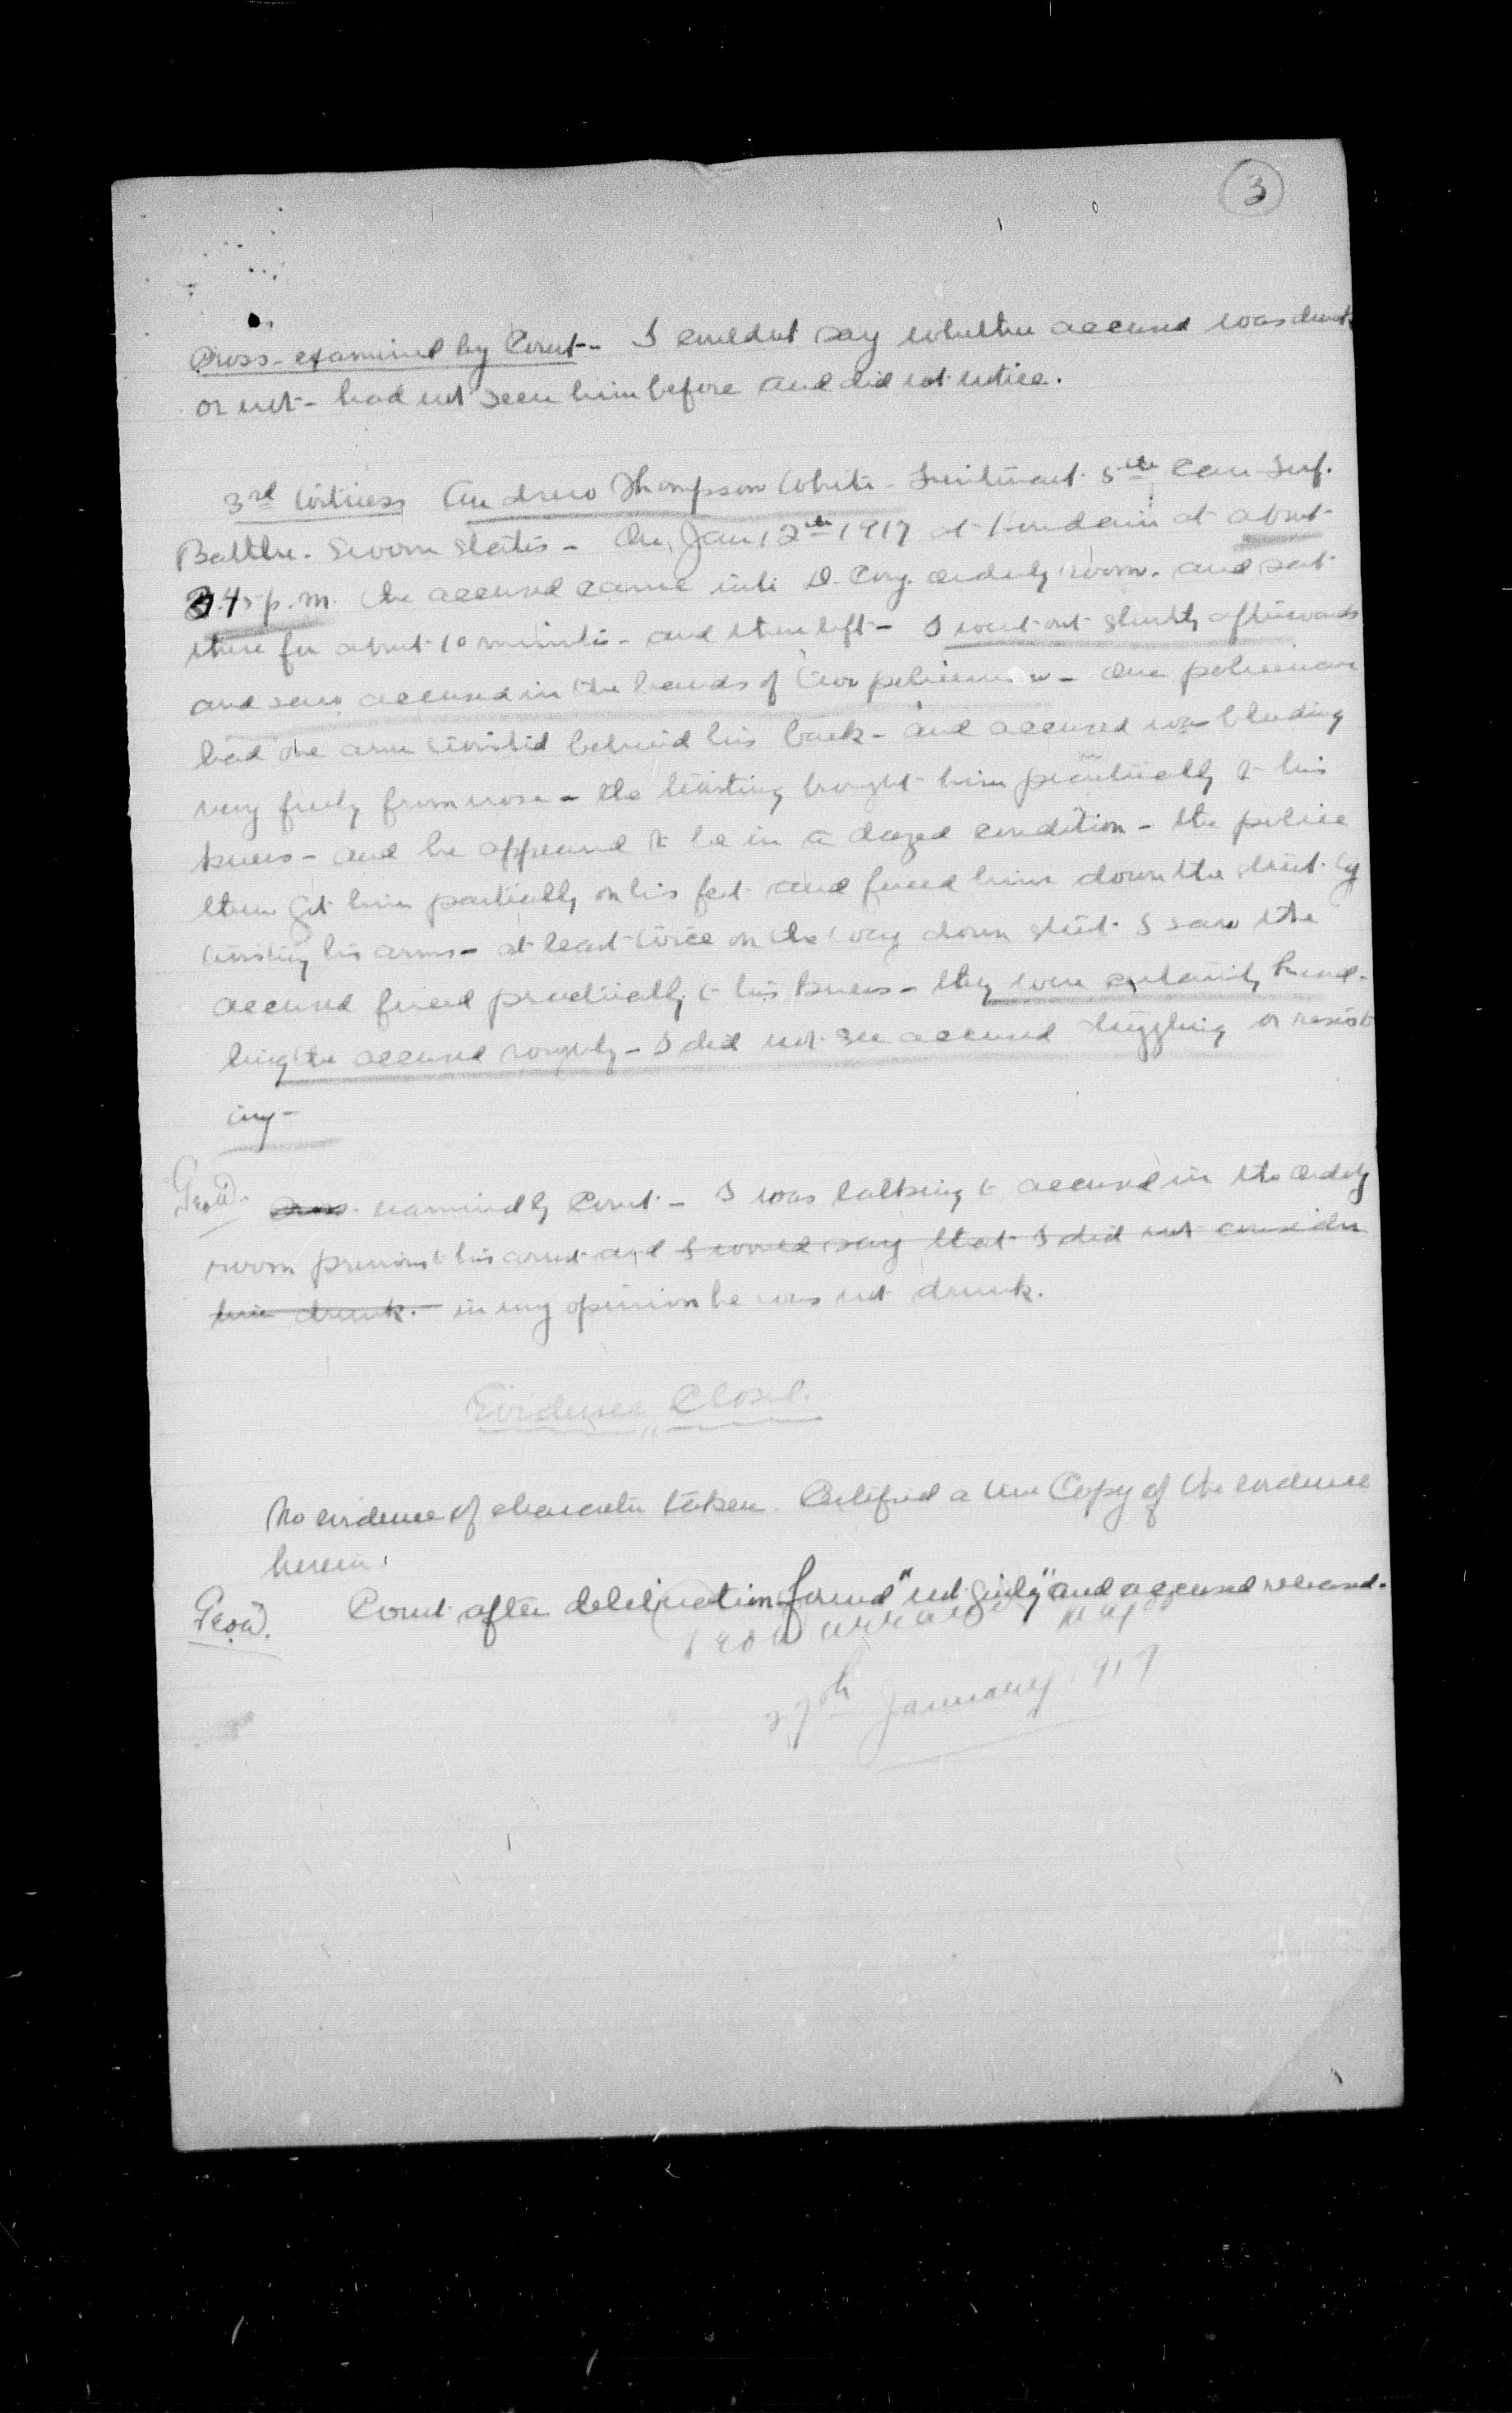 3
Cross-examined by Court - I couldnt say whether accused was drunk
or not - had not seen him before and did not notice.
3rd Witness Andrew Thompson White - Lieutenant 5th Can Inf.
Battln. Sworn states - On Jan 12th 1917 at at about
.45 p.m. the accused came into D. Coy. orderly room. and sat
there for about 10 minutes - and then left - I went out shortly afterwards
and saw accused in the hands of two policemen - One policeman
had one arm twisted behind his back - and accused was bleeding
very freely from nose - the twisting brought him practically to his
knees - and he appeared to be in a dazed condition - the police
then got him partially on his feet and forced him down the street by
twisting his arms - at least twice on the way down street I saw the
accused forced practically to his knees - they were certainly hand-
ling the accused roughly - I did not see accused struggling or resist
ing -
Cross examined by Court - I was talking to accused in the orderly
room previous to his arrest and I would say that I did not consider
him drunk. in my opinion he was not drunk.
Evidence Closed.
No evidence of character taken. Certified a true Copy of the evidence
herein.
Court after deliberation found "not Guilty" and accused released.
Major
27th January 1917